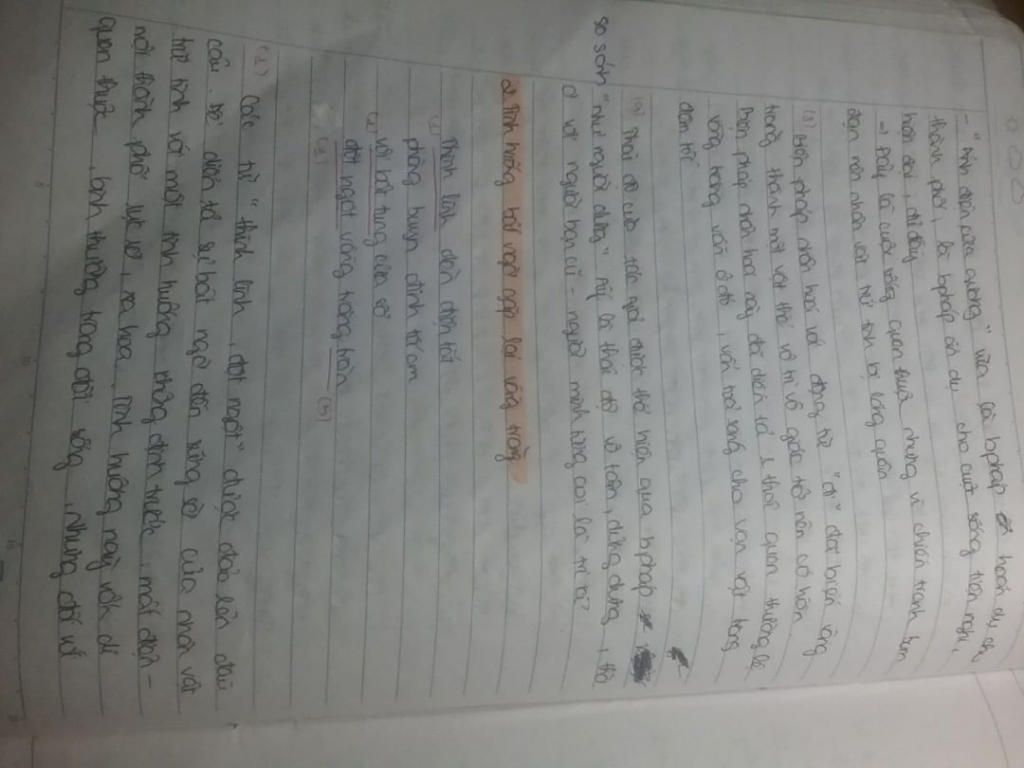 - "Ánh điện cửa gương" vừa là bpháp hoán dụ cho
thành phố, là bpháp ẩn dụ cho cuộc sống tiện nghi,
hiện đại, đủ đầy
→ Đây là cuộc sống quen thuộc nhưng vô chiến tranh hơn
đạn nên nhân vật trữ tình bị lãng quên
(3) Biện pháp nhân hoá với động từ "đi" đặc biệt vầng
trăng thành một vật thể vô tri vô giác trở nên có hồn.
Biện pháp nhân hoá này đã diễn tả thói quen thường lệ
vầng trăng vẫn ở đó, vẫn toả sáng cho vạn vật trong
dân tế
(4) Thái độ của tác giả được thể hiện qua bpháp
so sánh "như người dưng" ấy là thái độ vô tâm, dửng dưng, thờ
ơ với người bạn cũ - người mình từng coi là tri kỉ
2) Tình huống bất ngờ gặp lại vầng trăng
Thình lình đèn điện tắt
phòng buyn đinh tối om
vội bật tung cửa sổ
đột ngột vầng trăng tròn
(1)
(5)
(1)
Các từ "thình lình, đột ngột" được đảo lên đầu
câu. Đã diễn tả sự bất ngờ đến sững sờ của nhân vật
trữ tình với một tình huống không định trước, mất điện -
nơi thành phố rực rỡ, xa hoa, tình huống ngày vốn dĩ
quen thuộc, bình thường trong đời sống. Nhưng đối với